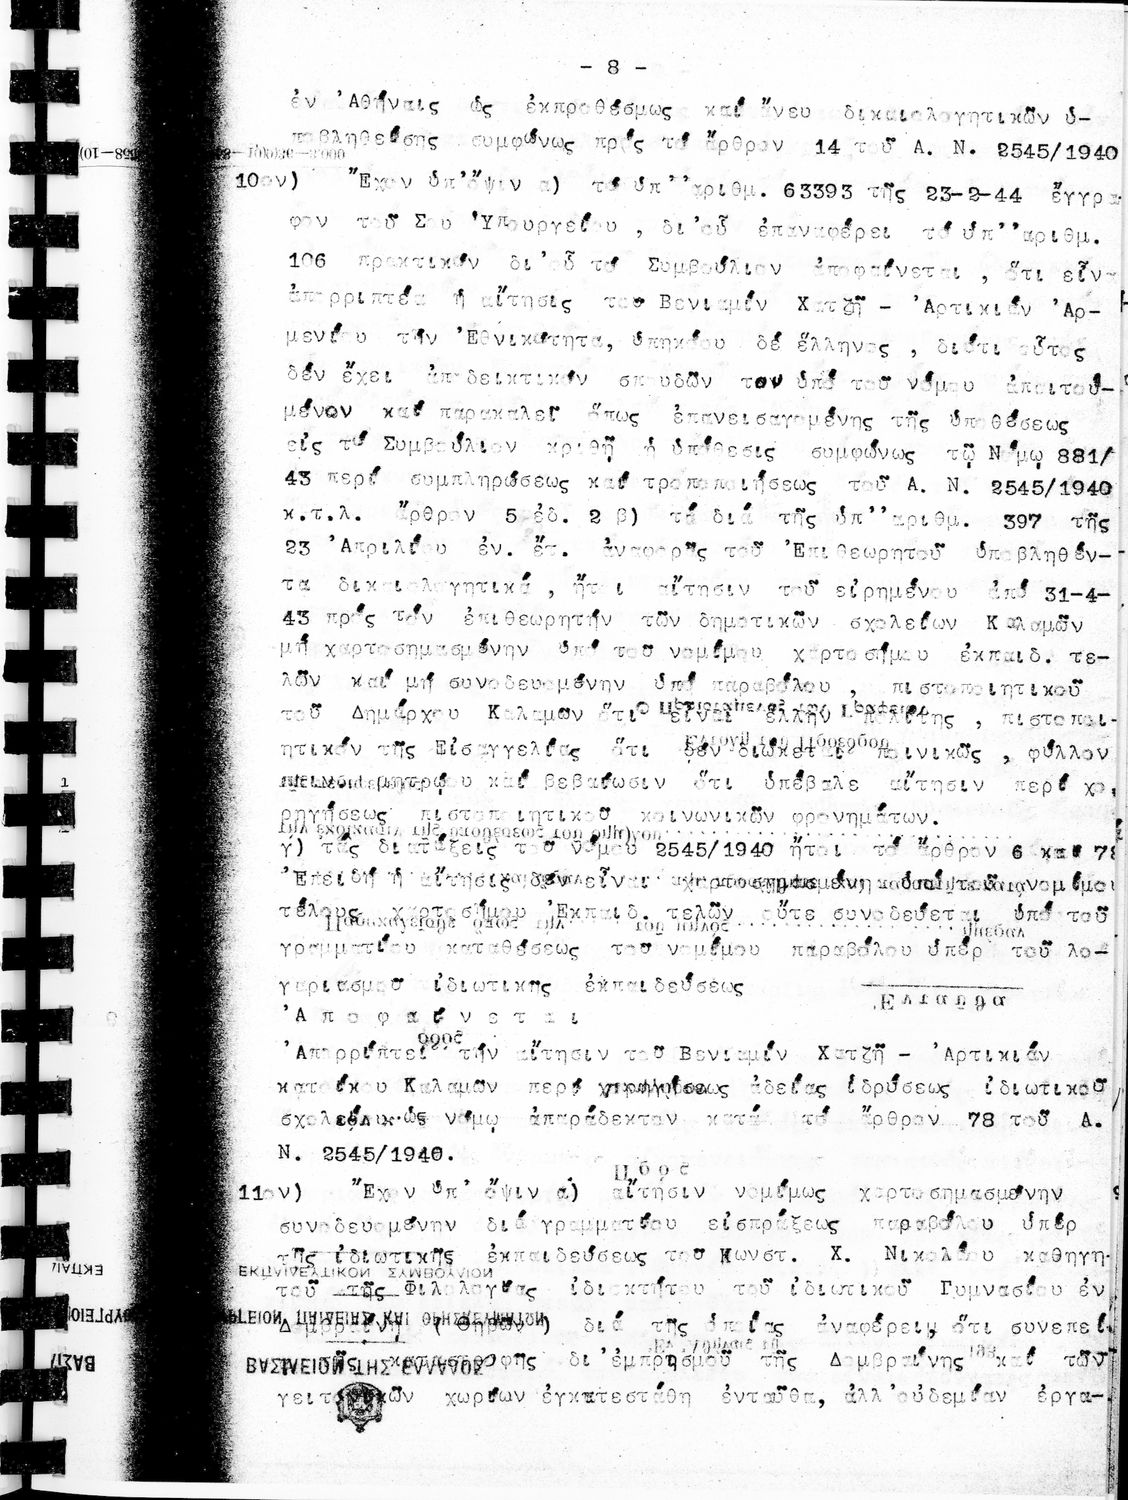 - 8 -
ἐν Ἀθήναις ὡς ἐκπροθέσμως καί ἄνευ δικαιολογητικῶν ὑ-
ποβληθείσης συμφώνως πρός τό ἄρθρον 14 τοῦ Α. Ν. 2545/1940
10ον) Ἔχον ὑπ'ὄψιν α) τό ὑπ''ἀριθμ. 63393 τῆς 23-2-44 ἔγγρα
φον τοῦ Σου Ὑπουργείου , δι'οὗ ἐπαναφέρει τό ὑπ''αριθμ.
106 πρακτικόν δι'οὗ τό Συμβούλιον ἀποφαίνεται , ὅτι εἶν
ἀπορριπτέα ἡ αἴτησις του Βενιαμίν Χατζῆ - Ἀρτικιάν Ἀρ-
μενίου τήν Ἐθνικότητα, ὑπηκόου δέ ἕλληνος , διότι οὗτος
δέν ἔχει ἀποδεικτικόν σπουδῶν τον ὑπό τοῦ νόμου ἀπαιτού-
μένον καί παρακαλεῖ ὅπως ἐπανεισαγομένης τῆς ὑποθέσεως
εἰς τό Συμβούλιον κριθῇ ἡ ὑπόθεσις συμφώνως τῷ Νόμῳ 881/
43 περί συμπληρώσεως καί τροποποιήσεως τοῦ Α. Ν. 2545/1940
κ.τ.λ. ἄρθρον 5 ἐδ. 2 β) τά διά τῆς ὑπ''αριθμ. 397 τῆς
23 Ἀπριλίου ἐν. ἔτ. ἀναφορᾶς τοῦ Ἐπιθεωρητοῦ ὑποβληθέν-
τα δικαιολογητικά , ἤτοι αἴτησιν τοῦ εἰρημένου ἀπό 31-4-
43 πρός τόν ἐπιθεωρητήν τῶν δημοτικῶν σχολείων Καλαμῶν
μή χαρτοσημασμένην ὑπό τοῦ νομίμου χαρτοσήμου ἐκπαιδ. τε-
λῶν καί μή συνοδευομένην ὑπό παραβόλου , πιστοποιητικοῦ
τοῦ Δημάρχου Καλαμῶν ὅτι εἶναι ἕλλην πολίτης , πιστοποι-
ητικόν τῆς Εἰσαγγελίας ὅτι δέν διώκεται ποινικῶς , φύλλον
μητρώου καί βεβαίωσιν ὅτι ὑπέβαλε αἴτησιν περί χο
ρηγήσεως πιστοποιητικοῦ κοινωνικῶν φρονημάτων.
γ) τάς διατάξεις τοῦ νόμου 2545/1940 ἤτοι τό ἄρθρον 6 καί 78
Ἐπειδή ἡ αἴτησις δέν εἶναι χαρτοσημασμένη ὑπό τοῦ νομίμου
τέλους χαρτοσήμου Ἐκπαιδ. τελῶν οὔτε συνοδεύεται ὑπό τοῦ
γραμματίου καταθέσεως τοῦ νομίμου παραβόλου ὑπέρ τοῦ λο-
γαριασμοῦ ἰδιωτικῆς ἐκπαιδεύσεως
Ἀ π ο φ α ί ν ε τ α ι
Ἀπορρίπτει τήν αἴτησιν τοῦ Βενιαμίν Χατζῆ - Ἀρτικιάν
κατοίκου Καλαμῶν περί χορηγήσεως ἀδείας ἱδρύσεως ἰδιωτικοῦ
σχολείου ὡς νόμῳ ἀπαράδεκτον κατά τό ἄρθρον 78 τοῦ Α.
Ν. 2545/1940.
11ον) Ἔχον ὑπ' ὄψιν α) αἴτησιν νομίμως χαρτοσημασμένην
συνοδευομένην διά γραμματίου εἰσπράξεως παραβόλου ὑπέρ
τῆς ἰδιωτικῆς ἐκπαιδεύσεως τοῦ Κωνστ. Χ. Νικολάου καθηγη-
τοῦ τῆς Φιλολογίας ἰδιοκτήτου τοῦ ἰδιωτικοῦ Γυμνασίου ἐν
Δομβραίνῃ ( Θηβῶν ) διά τῆς ὁποίας ἀναφέρει, ὅτι συνεπεί
τῆς καταστροφῆς δι'ἐμπρησμοῦ τῆς Δομβραίνης καί τῶν
γειτονικῶν χωρίων ἐγκατεστάθη ἐνταῦθα, ἀλλ'οὐδεμίαν ἐργα-
ΕΚΠΑΙΔΕΥΤΙΚΟΝ ΣΥΜΒΟΥΛΙΟΝ
ΒΑΣΙΛΕΙΟΝ ΤΗΣ ΕΛΛΑΔΟΣ